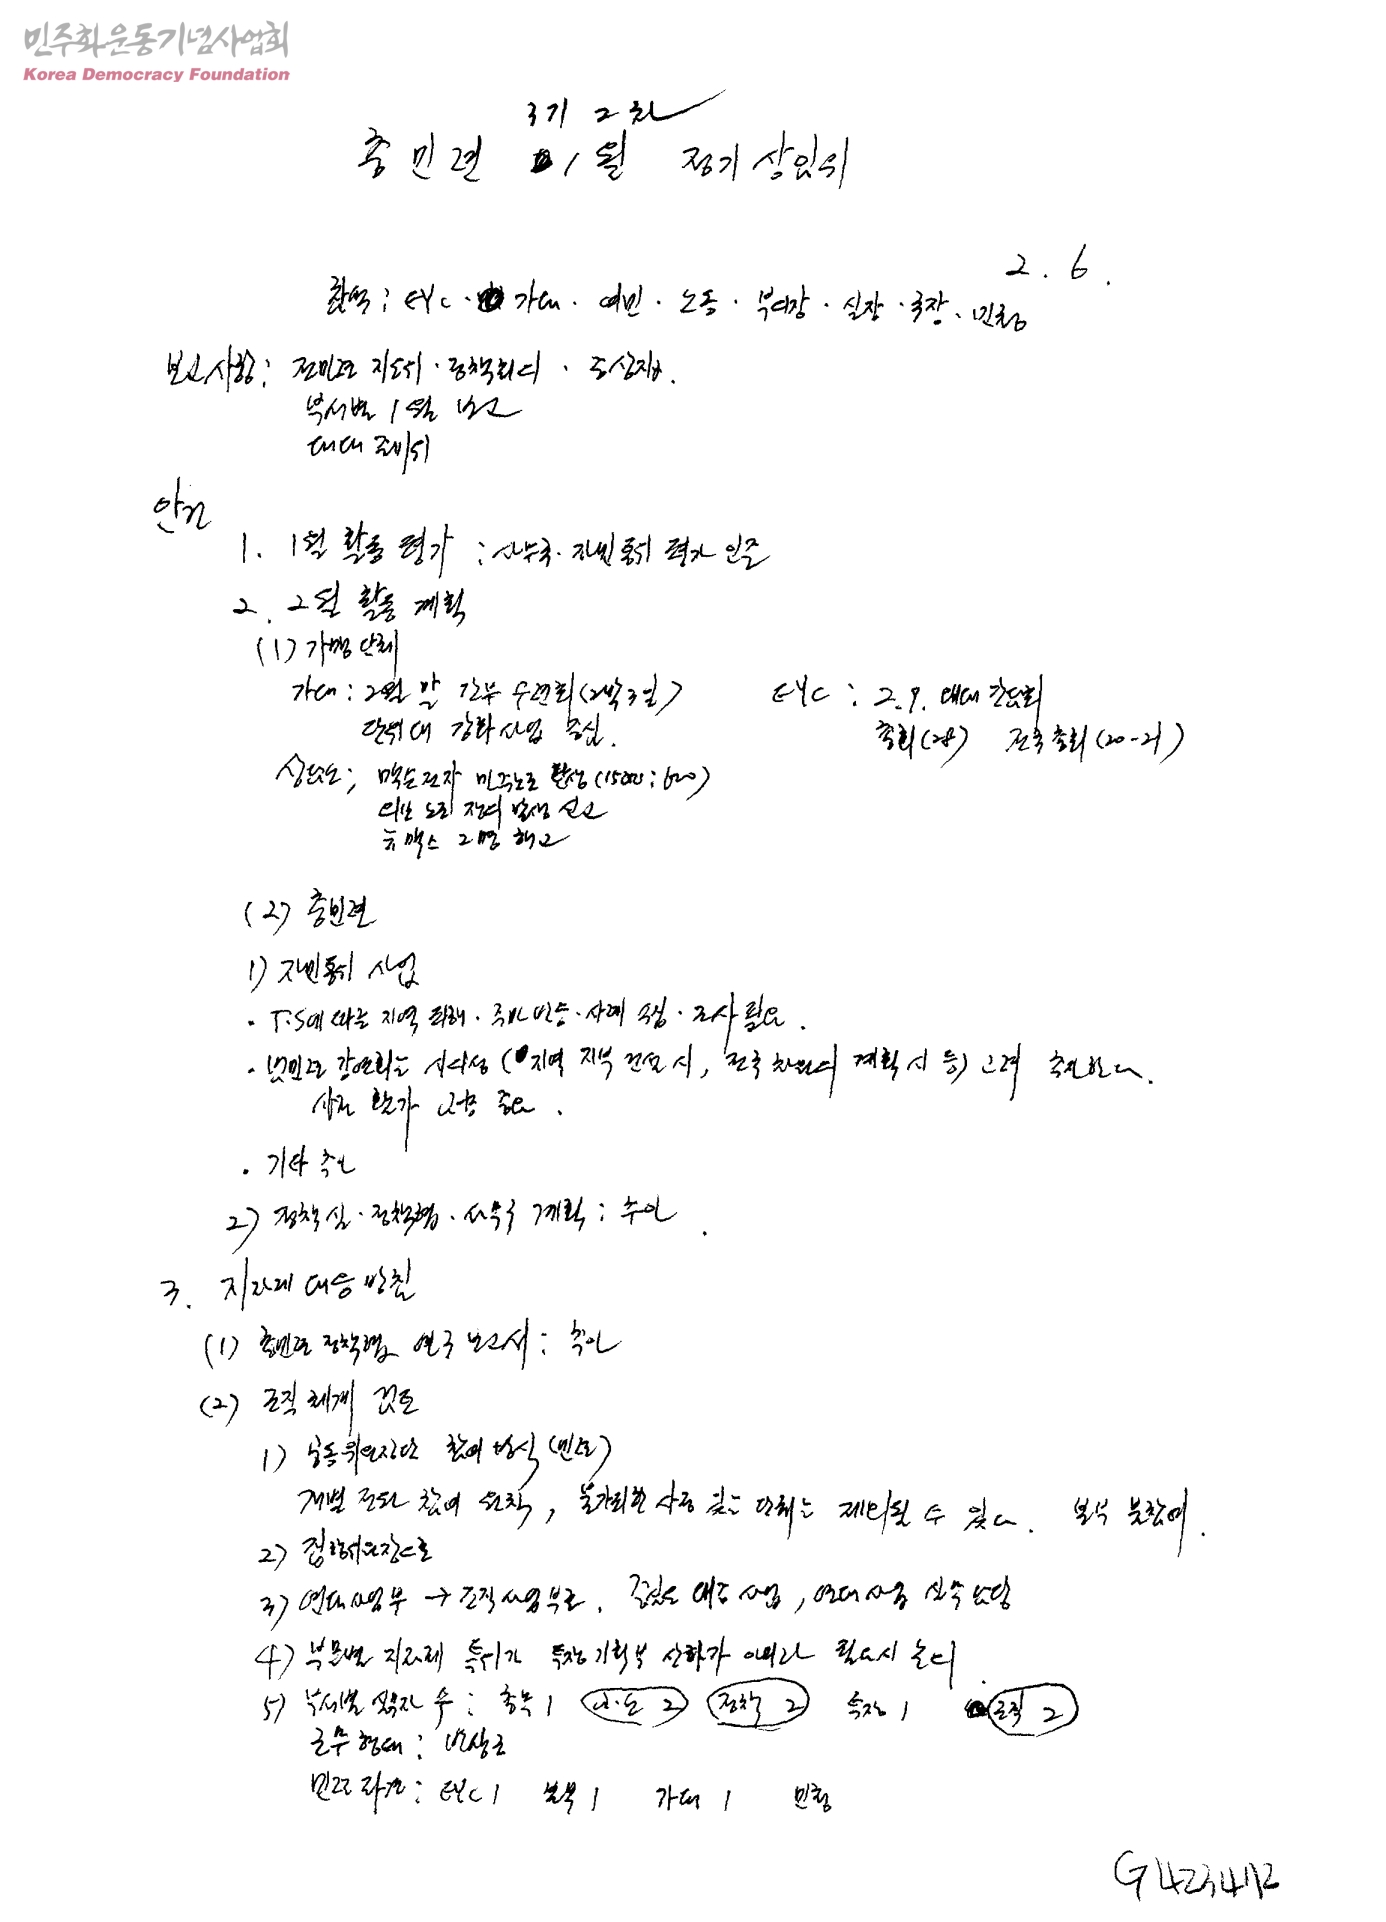 민주화운동기념사업회
Korea Democracy Foundation
3기 2차
충민련 1월 정기상임위
2. 6.
참석: EYC · 가대 · 여민 · 노동 · 부의장 · 실장 · 국장 · 민청
보고사항: 전민련 지도위 · 정책회의 ·
부서별 1월 보고
대대 준비위
안건
1. 1월 활동 평가 : 사무국 · 자민통위 평가 인준
2. 2월 활동 계획
(1) 가맹단체
가대: 2월 말 간부 수련회(2박3일)
단위대 강화사업 중심.
EYC : 2.9. 대대 간담회
총회(28) 전국총회(20-21)
상담소; 맥슨전자 민주노조
발생 신고
뉴맥스 2명 해고
(2) 충민련
1) 자민통위 사업
· T.S에 따른 지역 피해 · 주민 반응 · 사례 수집 · 조사 필요.
· 범민련 강연회는 시의성 (지역 지부 건설시, 전국 차원의 계획시 등) 고려 추진한다.
사전 평가 검증 중요.
· 기타 추인
2) 정책실 · 정책협 · 사무국 계획 : 추인.
3. 지자제 대응 방침
(1) 충민련 정책협 연구보고서 : 추인
(2) 조직체계 검토
1) 공동위원장단 참여 방식(민련)
개별 전원 참여 원칙, 불가피한 사정 있는 단체는 제외될 수 있다. 본부 불참여.
2) 집행위원장으로
3) 연대사업부 → 조직사업부로. 대중사업, 연대사업 실무 담당
4) 부문별 지자제 특위가 특장기획부 산하가 아니라 필요시 논의.
5) 부서별 실무자 수 : 총무 1 2 정책 2 특장 1 조직 2
근무형태 : 반상근
민련 파견 : EYC 1 본부 1 가대 1 민청
G423412